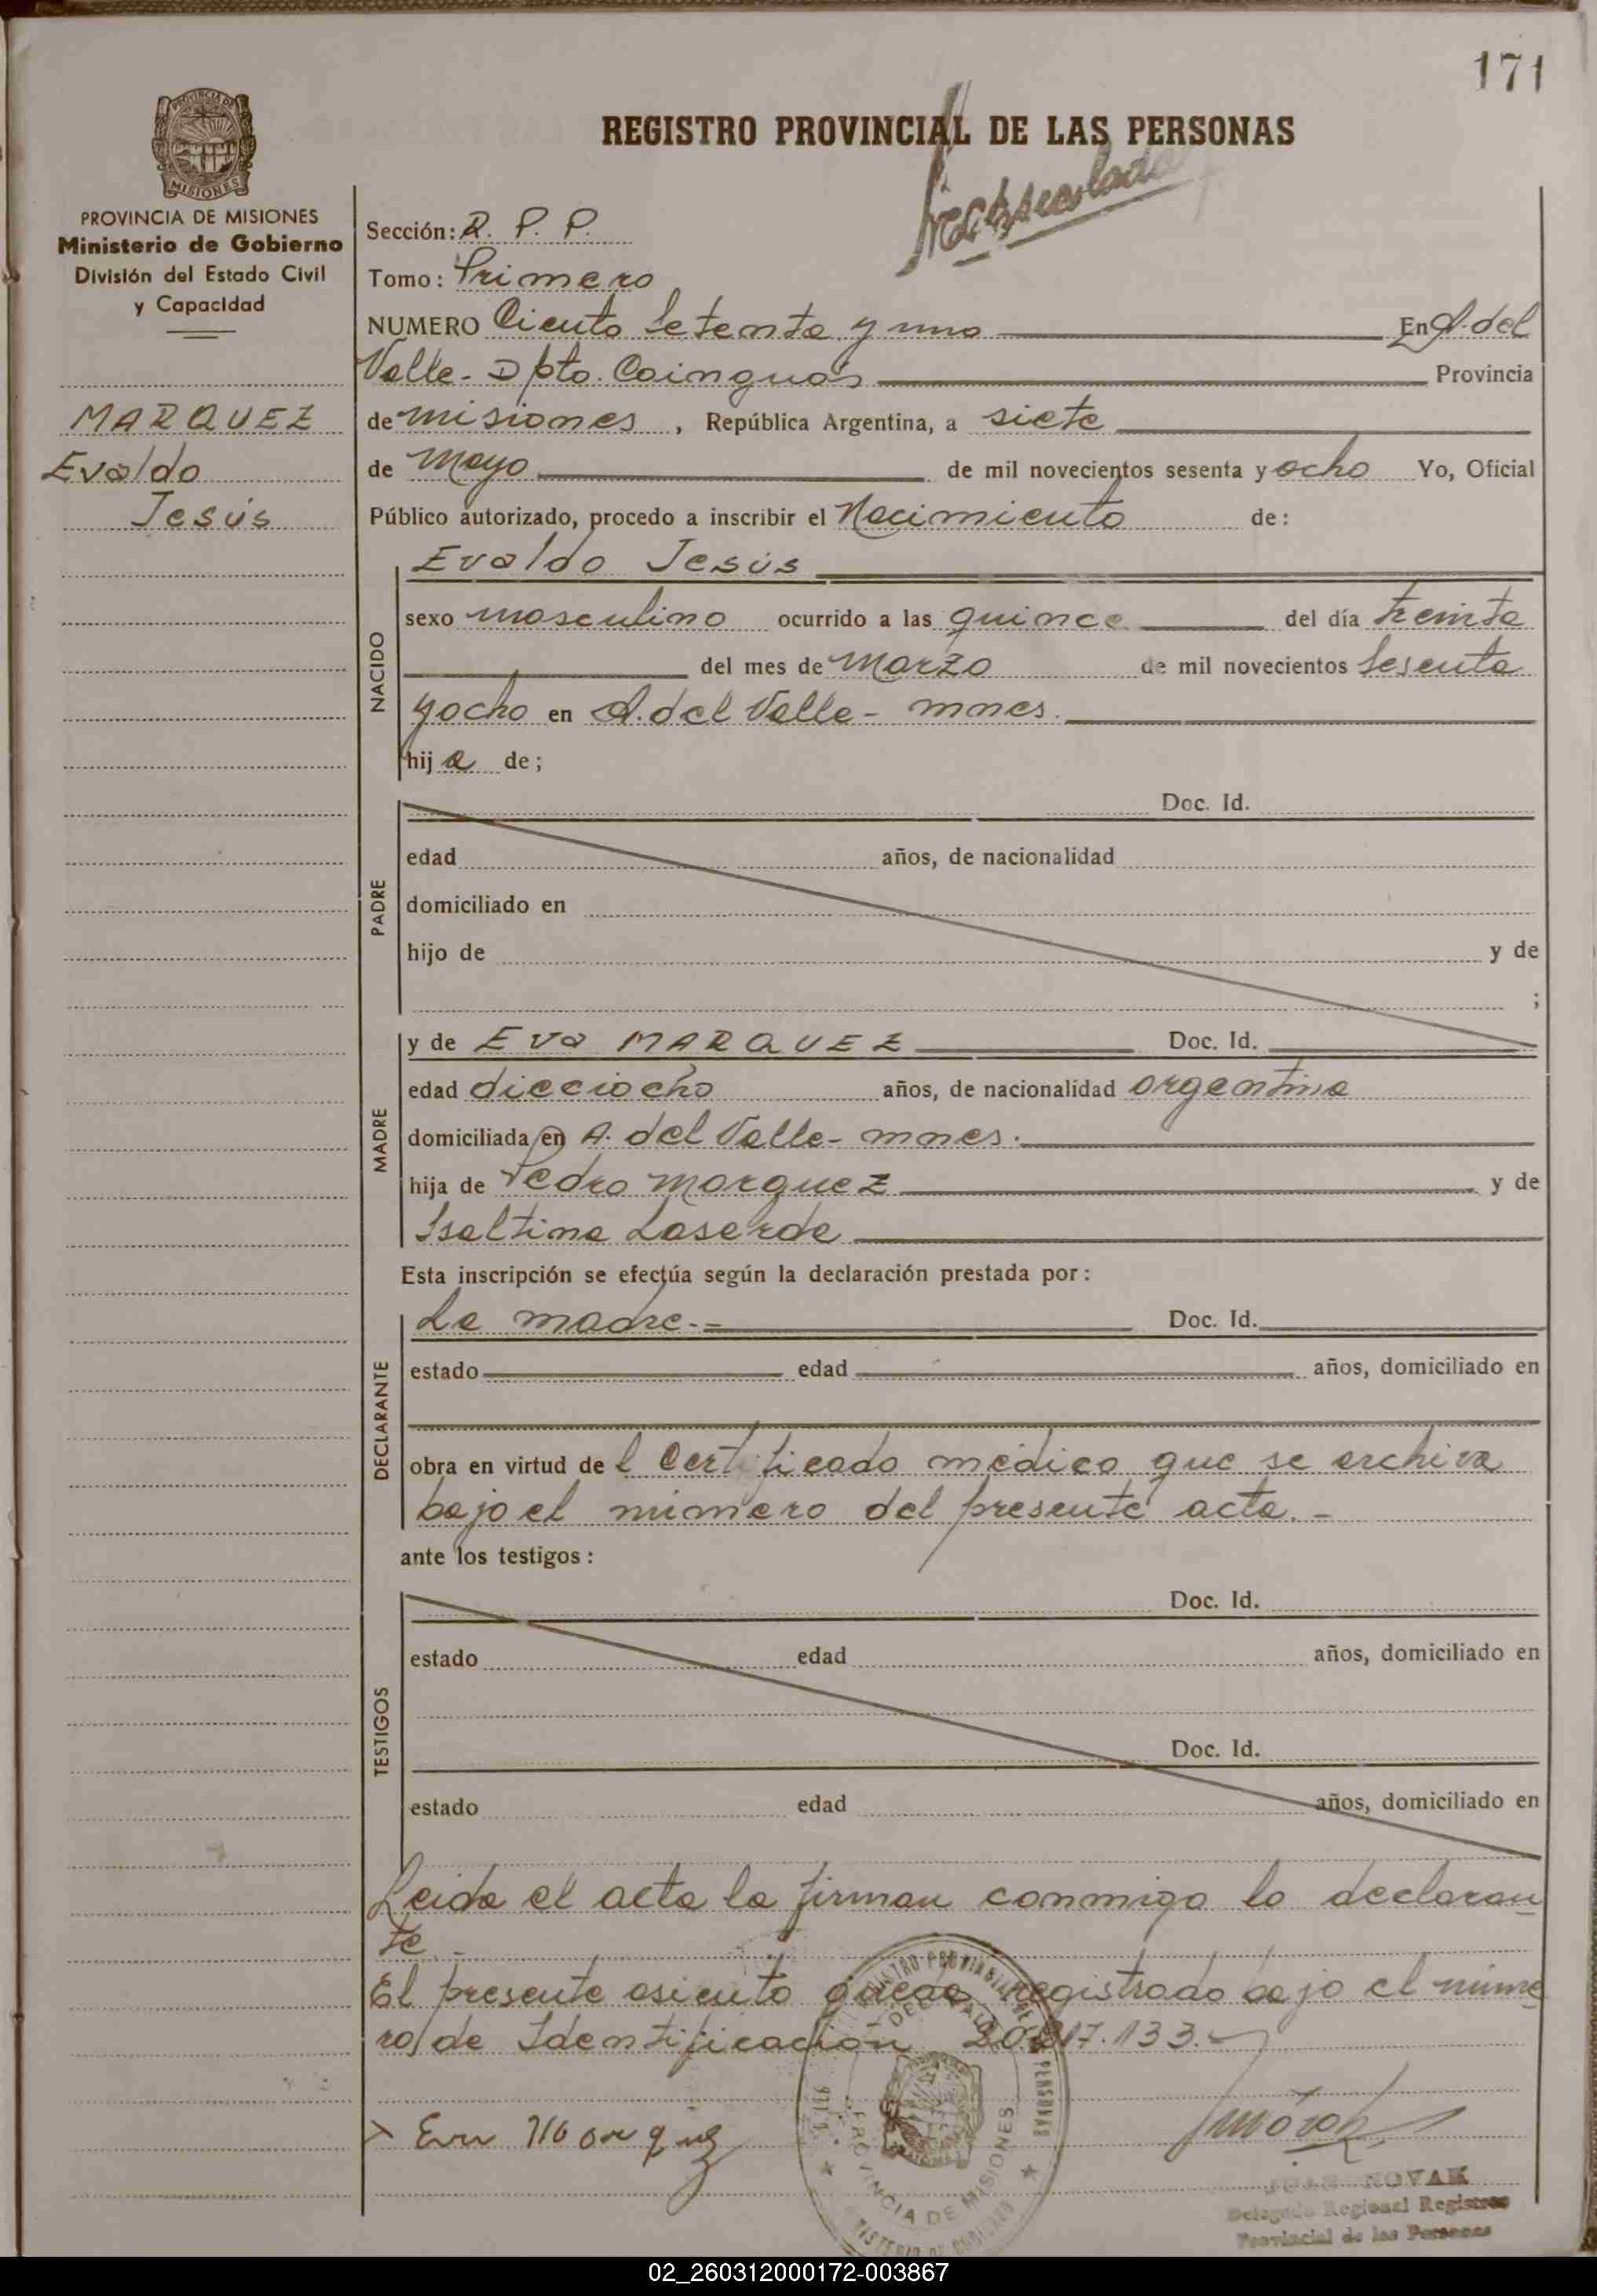 171
REGISTRO PROVINCIAL DE LAS PERSONAS
PROVINCIA DE
MISIONES
PROVINCIA DE MISIONES
Ministerio de Gobierno
División del Estado Civil
y Capacidad
MARQUEZ
Evaldo
Jesús
Sección: R. P. P.
Tomo: Primero
NUMERO Ciento Setenta y uno En A. del
Valle - Dpto. Cainguás Provincia
de misiones, República Argentina, a siete
de Mayo de mil novecientos sesenta y ocho Yo, Oficial
Público autorizado, procedo a inscribir el Nacimiento de:
NACIDO
Evaldo Jesús
sexo masculino ocurrido a las quince del día treinta
del mes de Marzo de mil novecientos Sesenta
y ocho en A. del Valle - mnes.
hij o de;
PADRE
Doc. Id.
edad años, de nacionalidad
domiciliado en
hijo de y de
;
MADRE
y de Eva MARQUEZ Doc. Id.
edad dieciocho años, de nacionalidad argentina
domiciliada en A. del Valle - mnes.
hija de Pedro Marquez y de
Isaltina
Esta inscripción se efectúa según la declaración prestada por:
DECLARANTE
La madre.- Doc. Id.
estado edad años, domiciliado en
obra en virtud de l Certificado médico que se archiva
bajo el número del presente acta. -
ante los testigos:
TESTIGOS
Doc. Id.
estado edad años, domiciliado en
Doc. Id.
estado edad años, domiciliado en
Leida el acta la firman conmigo la declaran
te. -
El presente asiento queda registrado bajo el núme
ro de Identificación 133.
Eva Marquez
REGISTRO PROVINCIAL DE PERSONAS
PROVINCIA DE MISIONES
NOVAK
Delegado Regional Registro
Provincial de las Personas
02_260312000172-003867